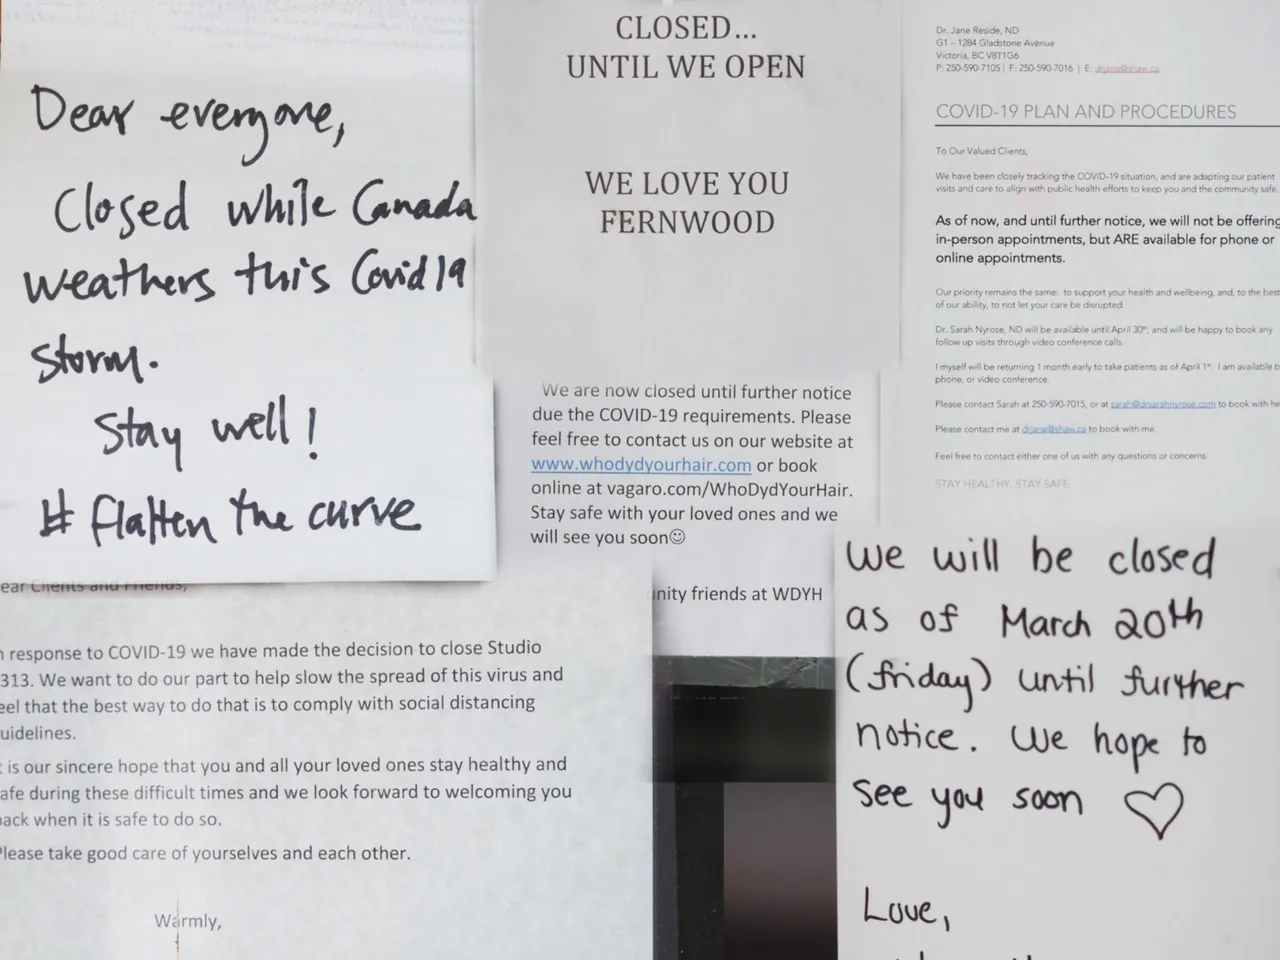 Dear everyone,
Closed while Canada
weathers this Covid 19
storm.
Stay well!
# flatten the curve
CLOSED...
UNTIL WE OPEN
WE LOVE YOU
FERNWOOD
Dr. Jane Reside, ND
G1 – 1284 Gladstone Avenue
Victoria, BC V8T1G6
P: 250-590-7105 | F: 250-590-7016 | E: drjane@shaw.ca
COVID-19 PLAN AND PROCEDURES
To Our Valued Clients,
We have been closely tracking the COVID-19 situation, and are adapting our patient
visits and care to align with public health efforts to keep you and the community safe.
As of now, and until further notice, we will not be offering
in-person appointments, but ARE available for phone or
online appointments.
Our priority remains the same: to support your health and wellbeing, and, to the best
of our ability, to not let your care be disrupted
Dr. Sarah Nyrose, ND will be available until April 30th, and will be happy to book any
follow up visits through video conference calls.
I myself will be returning 1 month early to take patients as of April 1st. I am available b
phone, or video conference.
Please contact Sarah at 250-590-7015, or at sarah@drsarahnyrose.com to book with he
Please contact me at drjane@shaw.ca to book with me.
Feel free to contact either one of us with any questions or concerns.
STAY HEALTHY, STAY SAFE.
We are now closed until further notice
due the COVID-19 requirements. Please
feel free to contact us on our website at
www.whodydyourhair.com or book
online at vagaro.com/WhoDydYourHair.
Stay safe with your loved ones and we
will see you soon☺
nity friends at WDYH
ear Clients and Friends,
n response to COVID-19 we have made the decision to close Studio
313. We want to do our part to help slow the spread of this virus and
eel that the best way to do that is to comply with social distancing
uidelines.
t is our sincere hope that you and all your loved ones stay healthy and
afe during these difficult times and we look forward to welcoming you
back when it is safe to do so.
Please take good care of yourselves and each other.
Warmly,
We will be closed
as of March 20th
(friday) until further
notice. We hope to
see you soon ♡
Love,